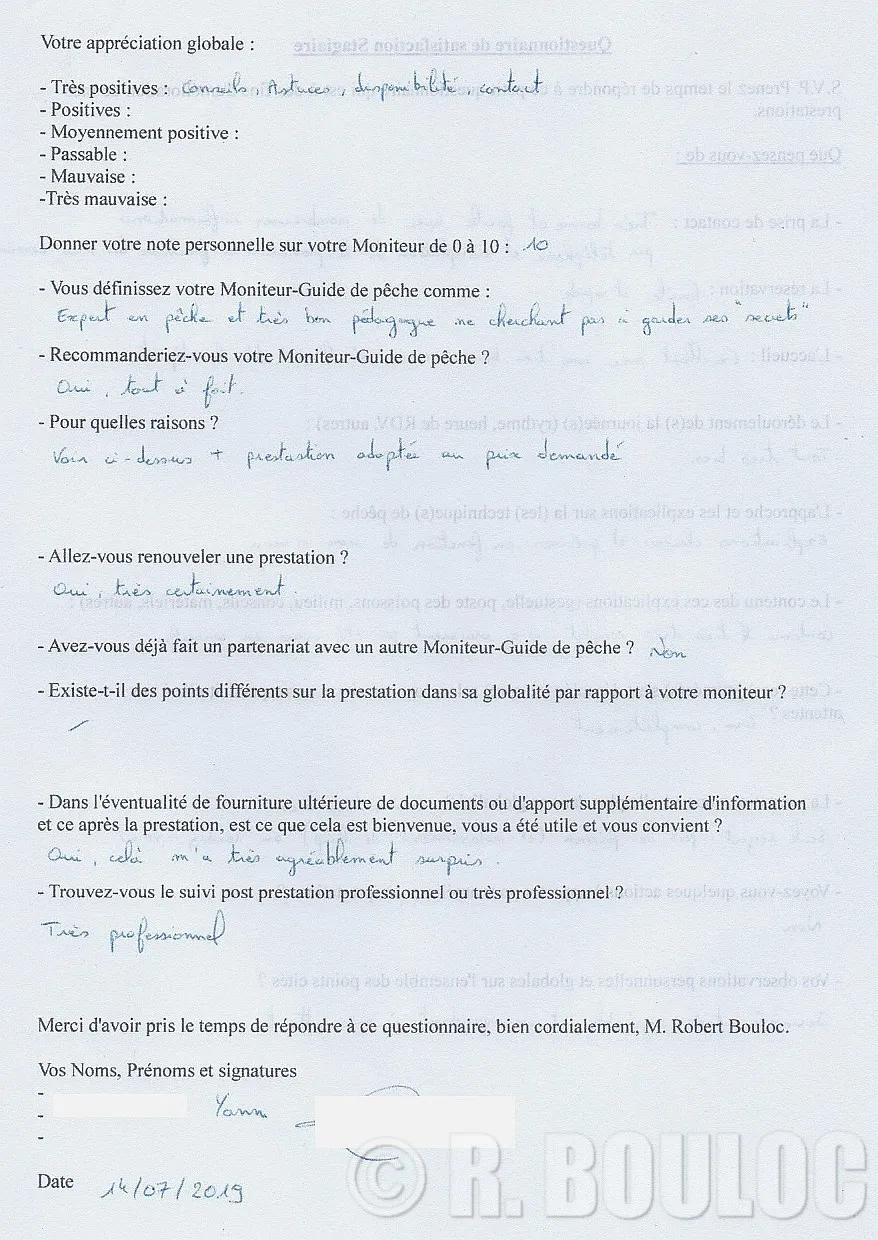 Votre appréciation globale :
- Très positives : Conseils, Astuces, disponibilité, contact
- Positives :
- Moyennement positive :
- Passable :
- Mauvaise :
-Très mauvaise :
Donner votre note personnelle sur votre Moniteur de 0 à 10 : 10
- Vous définissez votre Moniteur-Guide de pêche comme :
Expert en pêche et très bon pédagogue ne cherchant pas à garder ses "secrets"
- Recommanderiez-vous votre Moniteur-Guide de pêche ?
Oui, tout à fait.
- Pour quelles raisons ?
Voir ci-dessus + prestation adaptée au prix demandé
- Allez-vous renouveler une prestation ?
Oui, très certainement.
- Avez-vous déjà fait un partenariat avec un autre Moniteur-Guide de pêche ? Non
- Existe-t-il des points différents sur la prestation dans sa globalité par rapport à votre moniteur ?
/
- Dans l'éventualité de fourniture ultérieure de documents ou d'apport supplémentaire d'information
et ce après la prestation, est ce que cela est bienvenue, vous a été utile et vous convient ?
Oui, celà m'a très agréablement surpris.
- Trouvez-vous le suivi post prestation professionnel ou très professionnel ?
Très professionnel
Merci d'avoir pris le temps de répondre à ce questionnaire, bien cordialement, M. Robert Bouloc.
Vos Noms, Prénoms et signatures
-
- Yann
-
Date 14/07/2019
© R. BOULOC